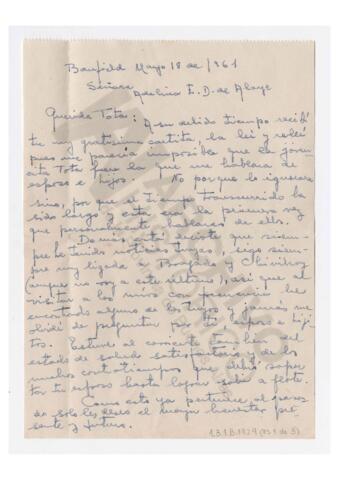 Banfield Mayo 18 de 1961
Señora
Adelina E. D. de Alaye
Querida Tota: A su debido tiempo recibí
tu muy gratísima cartita, la leí y relei
pues me parecía imposible que la joven
cita Tota fuera la que me hablara de
esposo e hijos. No porque lo ignorara
sino, por que el tiempo transcurrido ha
sido largo y esta era la primera vez
que personalmente hablabas de ellos.
Demás está decirte que siem
pre he tenido noticias tuyas, sigo siem
pre muy ligada a y Chivilcoy
(aunque no voy a este último), así que al
visitar a los míos con frecuencia he
encontrado alguno de los tuyos y jamás me
olvidé de preguntar por tí, esposo e hiji
tos. Estuve al corriente también del
estado de salud satisfactorio y de los
muchos contratiempos que debió sopor
tar tu esposo hasta lograr salir a flote.
Como esto ya pertenece al pasa
do solo les deseo el mayor bienestar pre
sente y futuro.
1.3.1.B.1929 (es 1 de 3)